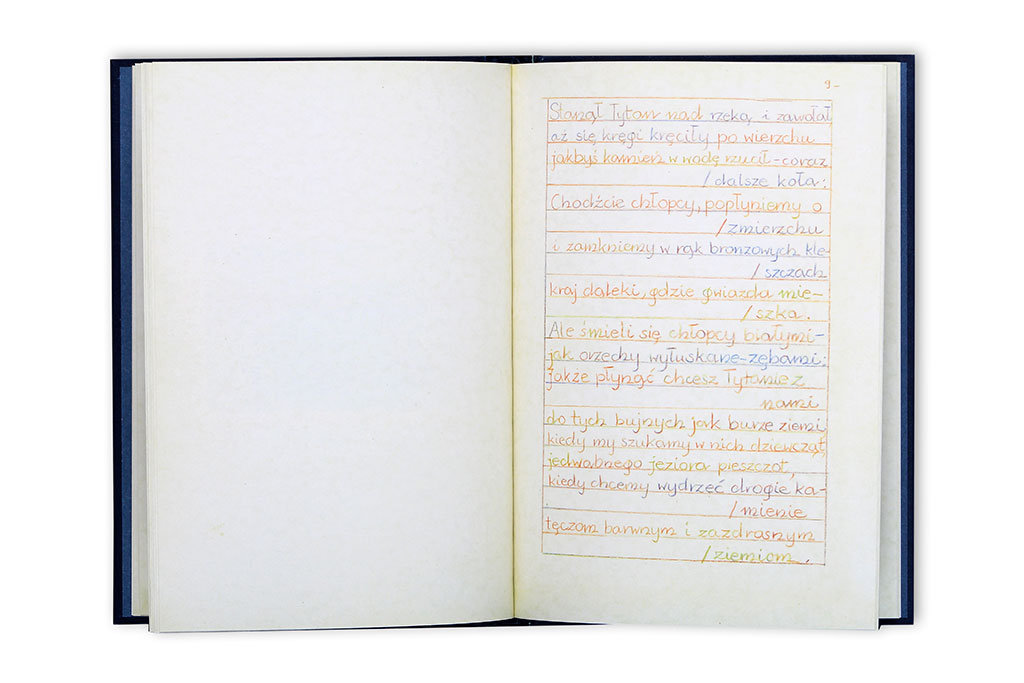 9-
Stanął Tytan nad rzeką i zawołał,
aż się kręgi kręciły po wierzchu
jakbyś kamień w wodę rzucił-coraz
/dalsze koła:
Chodźcie chłopcy, popłyniemy o
/zmierzchu
i zamkniemy w rąk bronzowych kle-
/szczach
kraj daleki, gdzie gwiazda mie-
/szka.
Ale śmieli się chłopcy białymi-
jak orzechy wyłuskane-zębami:
Jakże płynąć chcesz Tytanie z
nami
do tych bujnych jak burze ziemi
kiedy my szukamy w nich dziewcząt,
jedwabnego jeziora pieszczot,
kiedy chcemy wydrzeć drogie ka-
/mienie
tęczom barwnym i zazdrosnym
/ziemiom.